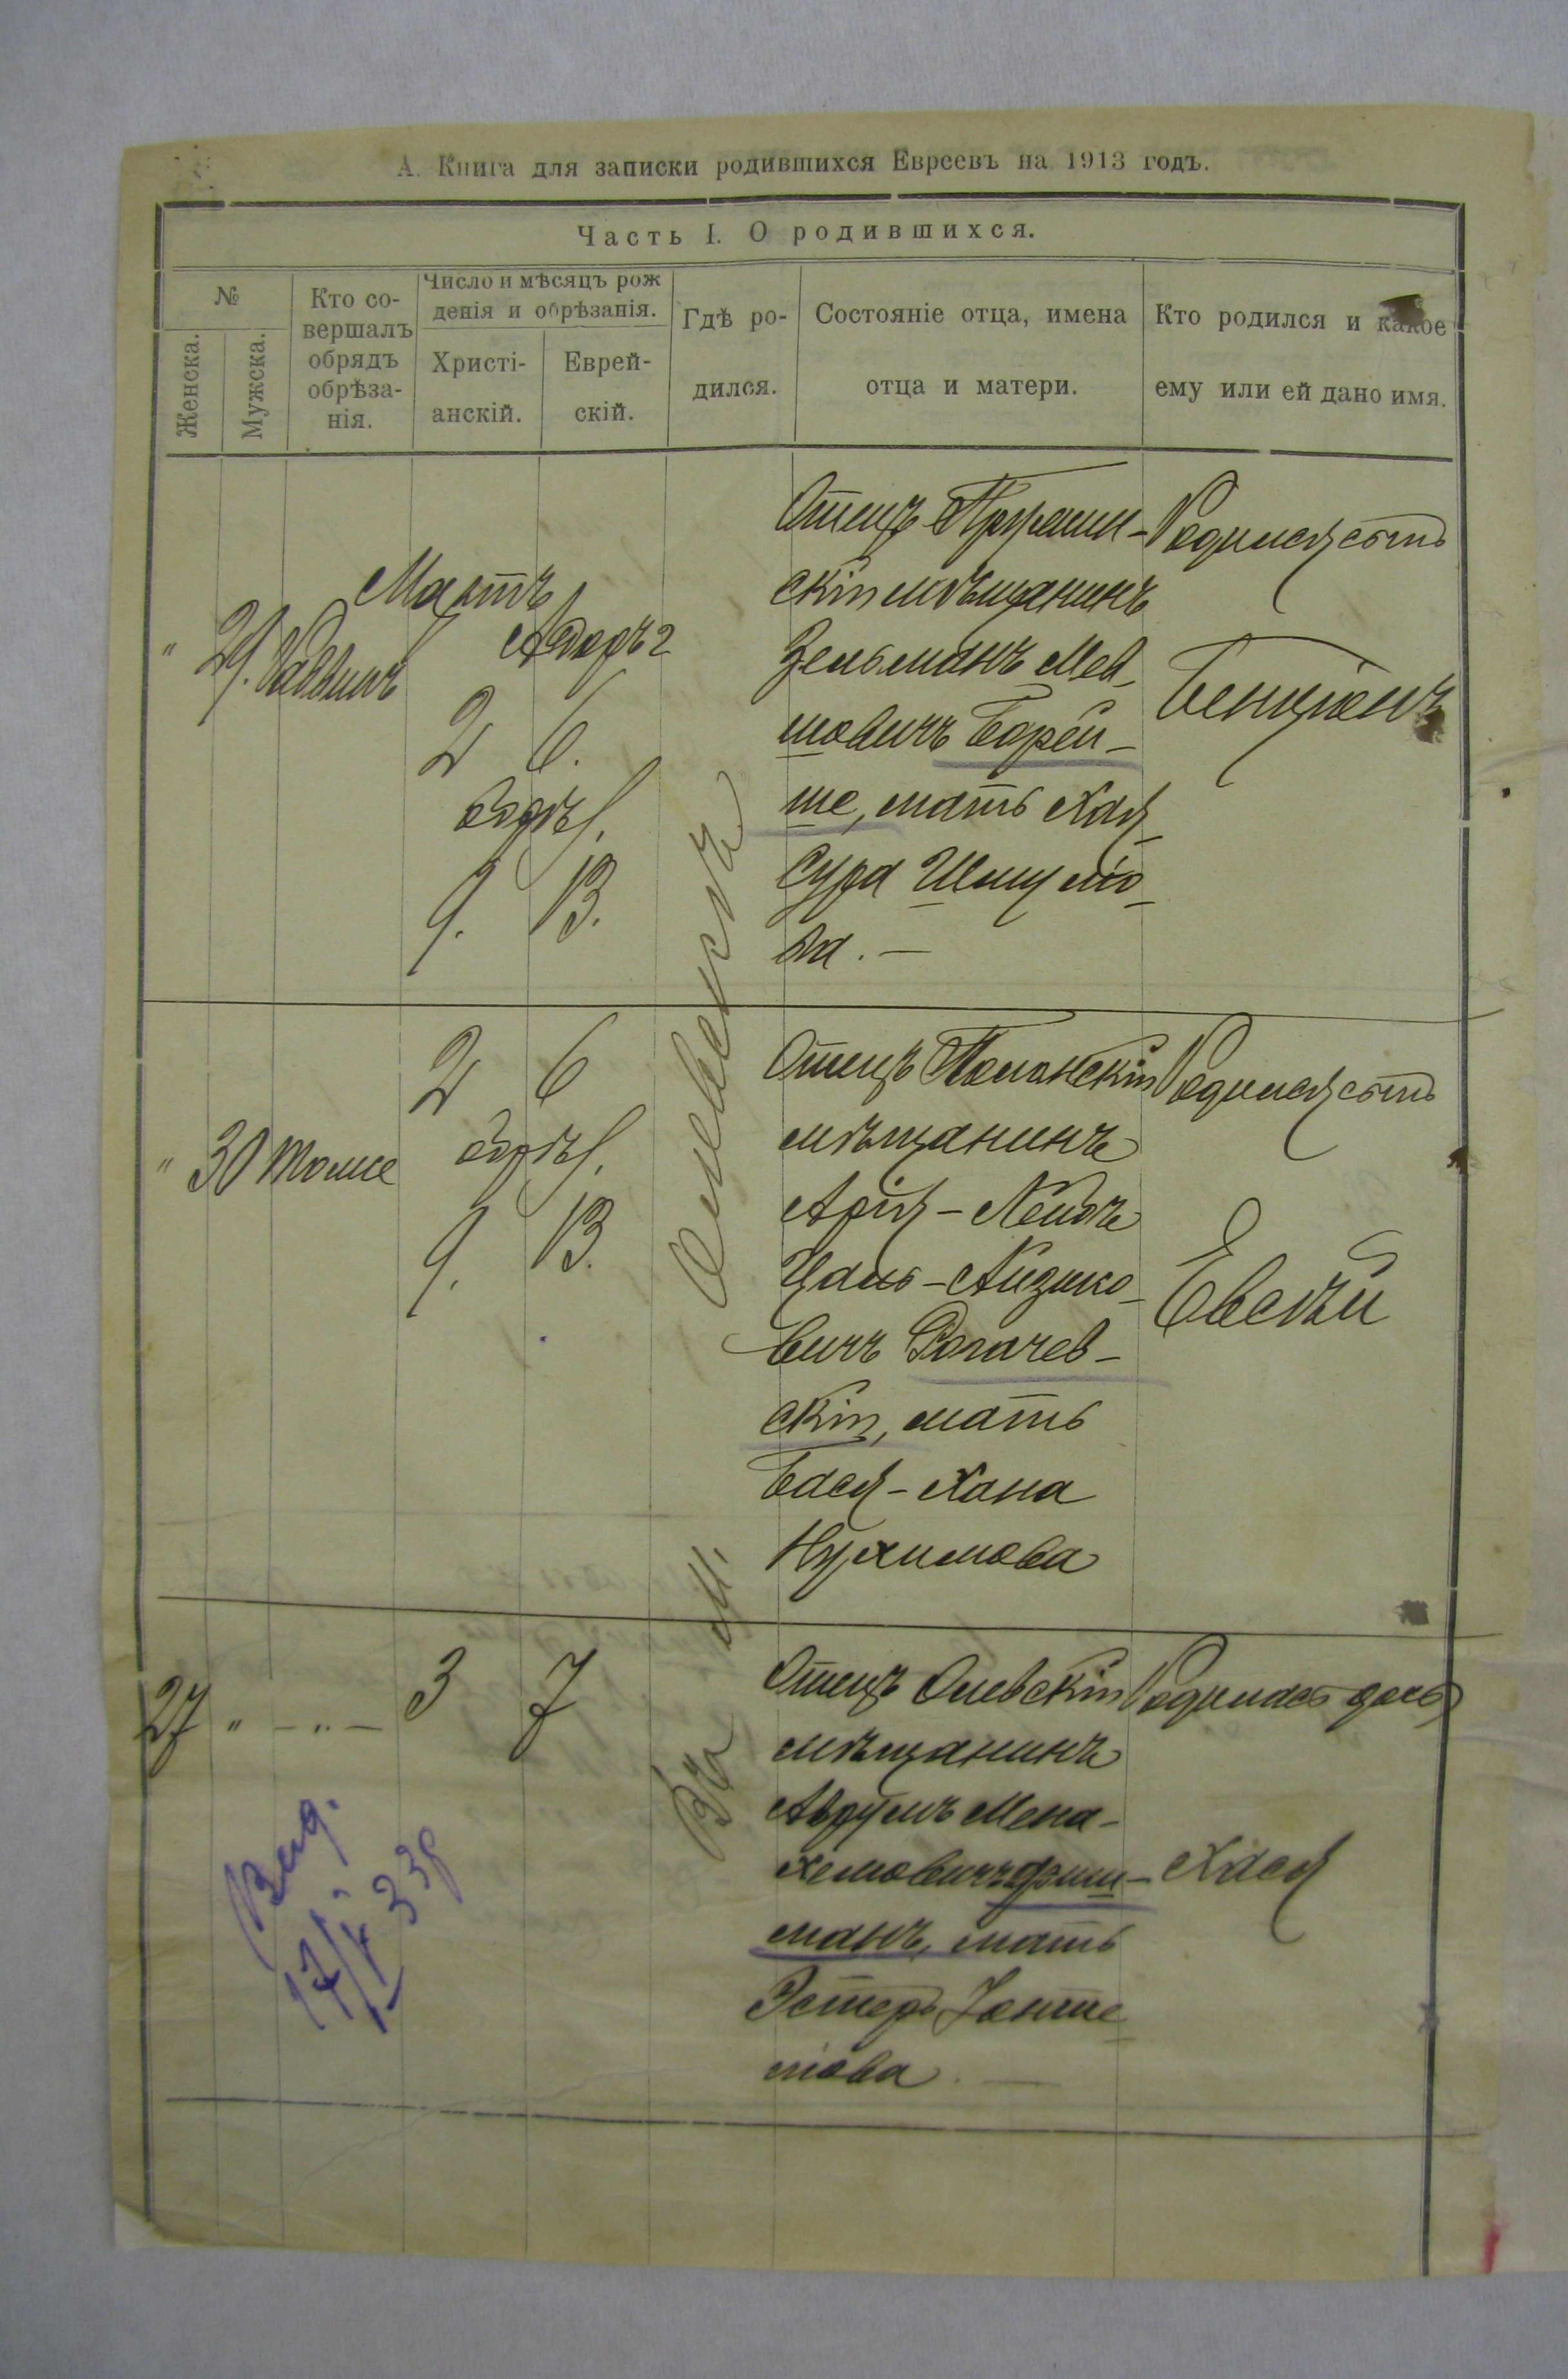 А. Книга для записки родившихся Евреевъ на 1913 годъ.
Часть I. О родившихся.
№
Женска.
Мужска.
Кто со-
вершалъ
обрядъ
обрѣза-
нія.
Число и мѣсяцъ рож
денія и обрѣзанія.
Христі-
анскій.
Еврей-
скій.
Гдѣ ро-
дился.
Состояніе отца, имена
отца и матери.
Кто родился и какое
ему или ей дано имя.
" 29. Раввинъ
Мартъ
Адаръ 2
2 6.
обрѣз.
9. 13.
Въ м. Олевскѣ
Отецъ
скій мѣщанинъ
Зельманъ Мев-
шовичъ Борей-
ше, мать Хая
Сура Шмулю-
ва. —
Родился сынъ
Бенціонъ
" 30 тоже
2 6
обрѣз.
9. 13.
Отецъ
мѣщанинъ
Арія-Лейбъ
Цаль-Айзико-
вичъ Рогачев-
скій, мать
Бася-Хана
Нухимова
Родился сынъ
Евсѣй
27 " — " —
3 7
Отецъ Олевскій
мѣщанинъ
Аврумъ Мена-
хемовичъ Фиш-
манъ, мать
Эстеръ Іонте-
това. —
Родилась дочь
Хася
Выд.
17/V 33 г